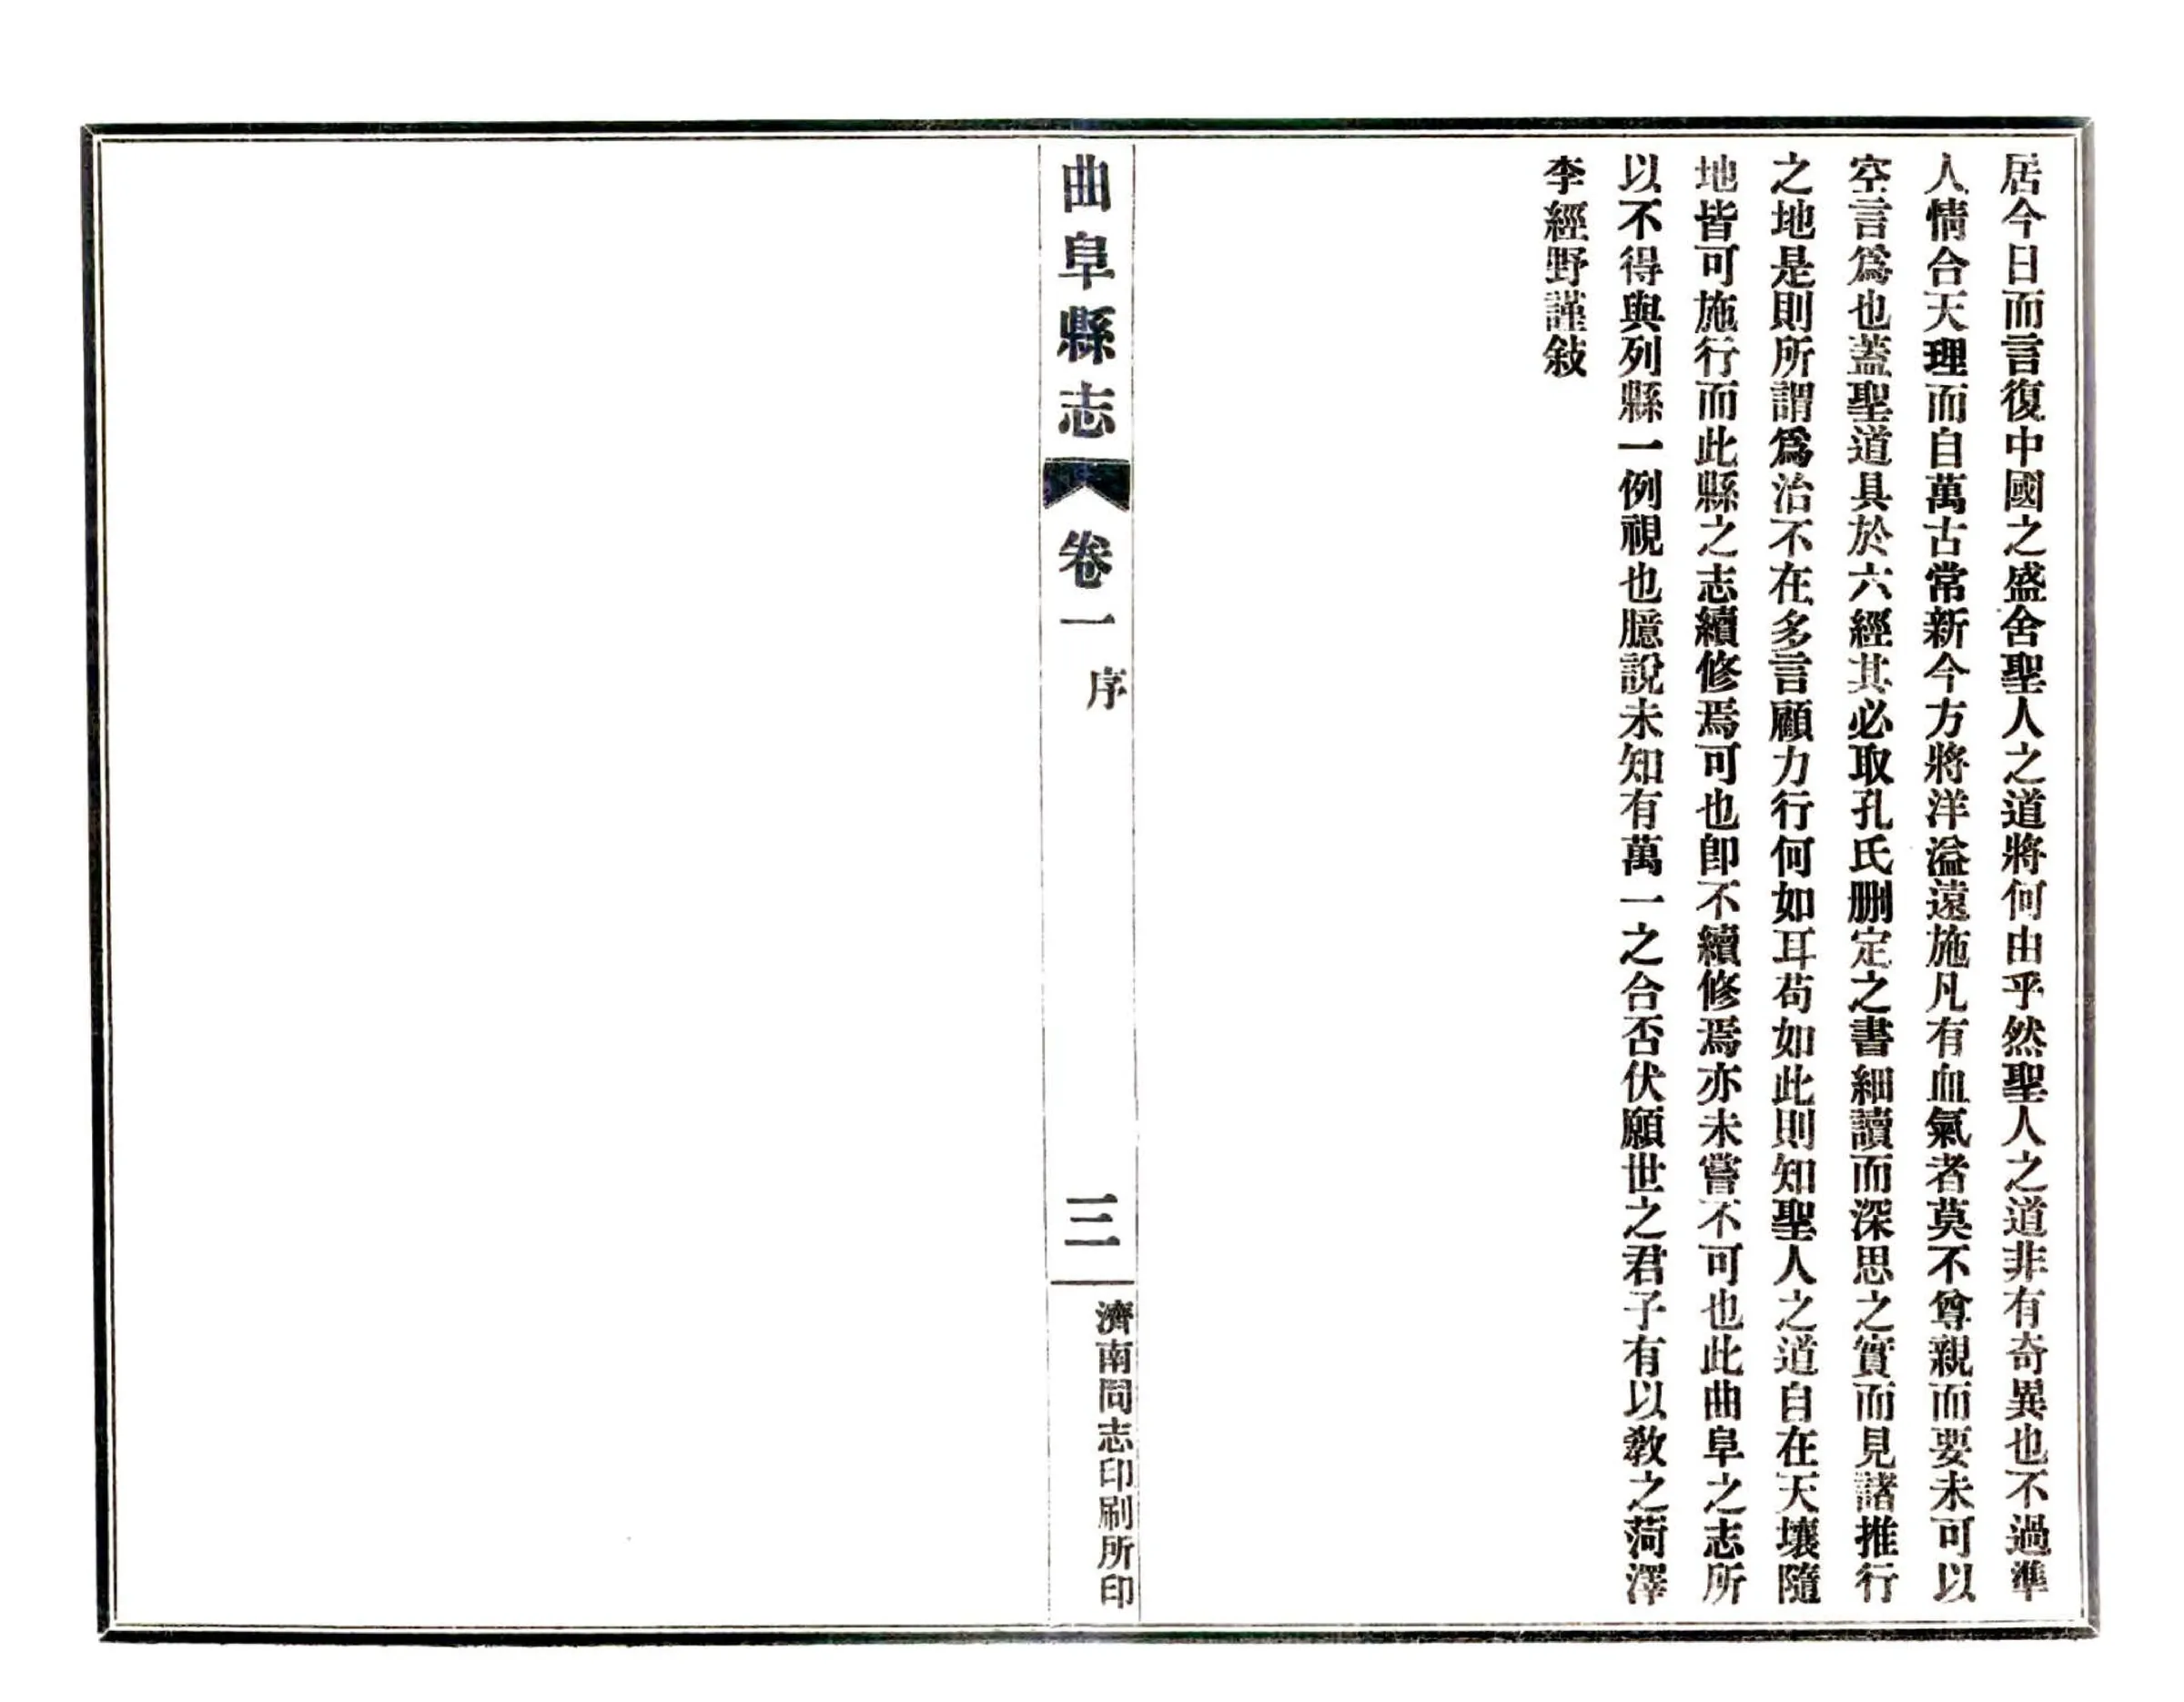 居今日而言復中國之盛舍聖人之道將何由乎然聖人之道非有奇異也不過準
人情合天理而自萬古常新今方將洋溢遠施凡有血氣者莫不尊親而要未可以
空言爲也蓋聖道具於六經其必取孔氏删定之書細讀而深思之實而見諸推行
之地是則所謂爲治不在多言顧力行何如耳苟如此則知聖人之道自在天壤隨
地皆可施行而此縣之志續修焉可也卽不續修焉亦未嘗不可也此曲阜之志所
以不得與列縣一例視也臆說未知有萬一之合否伏願世之君子有以敎之菏澤
李經野謹敍
曲阜縣志
卷一
序
三
濟南同志印刷所印